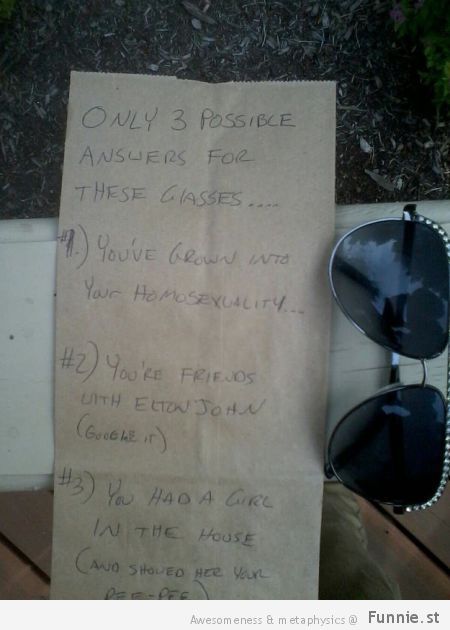 ONLY 3 POSSIBLE
ANSWERS FOR
THESE GLASSES....
#1.) YOU'VE GROWN INTO
YOUR HOMOSEXUALITY...
#2) YOU'RE FRIENDS
WITH ELTON JOHN
(GOOGLE IT)
#3) YOU HAD A GIRL
IN THE HOUSE
(AND SHOWED HER YOUR
PEE-PEE)
Awesomeness & metaphysics @ Funnie.st